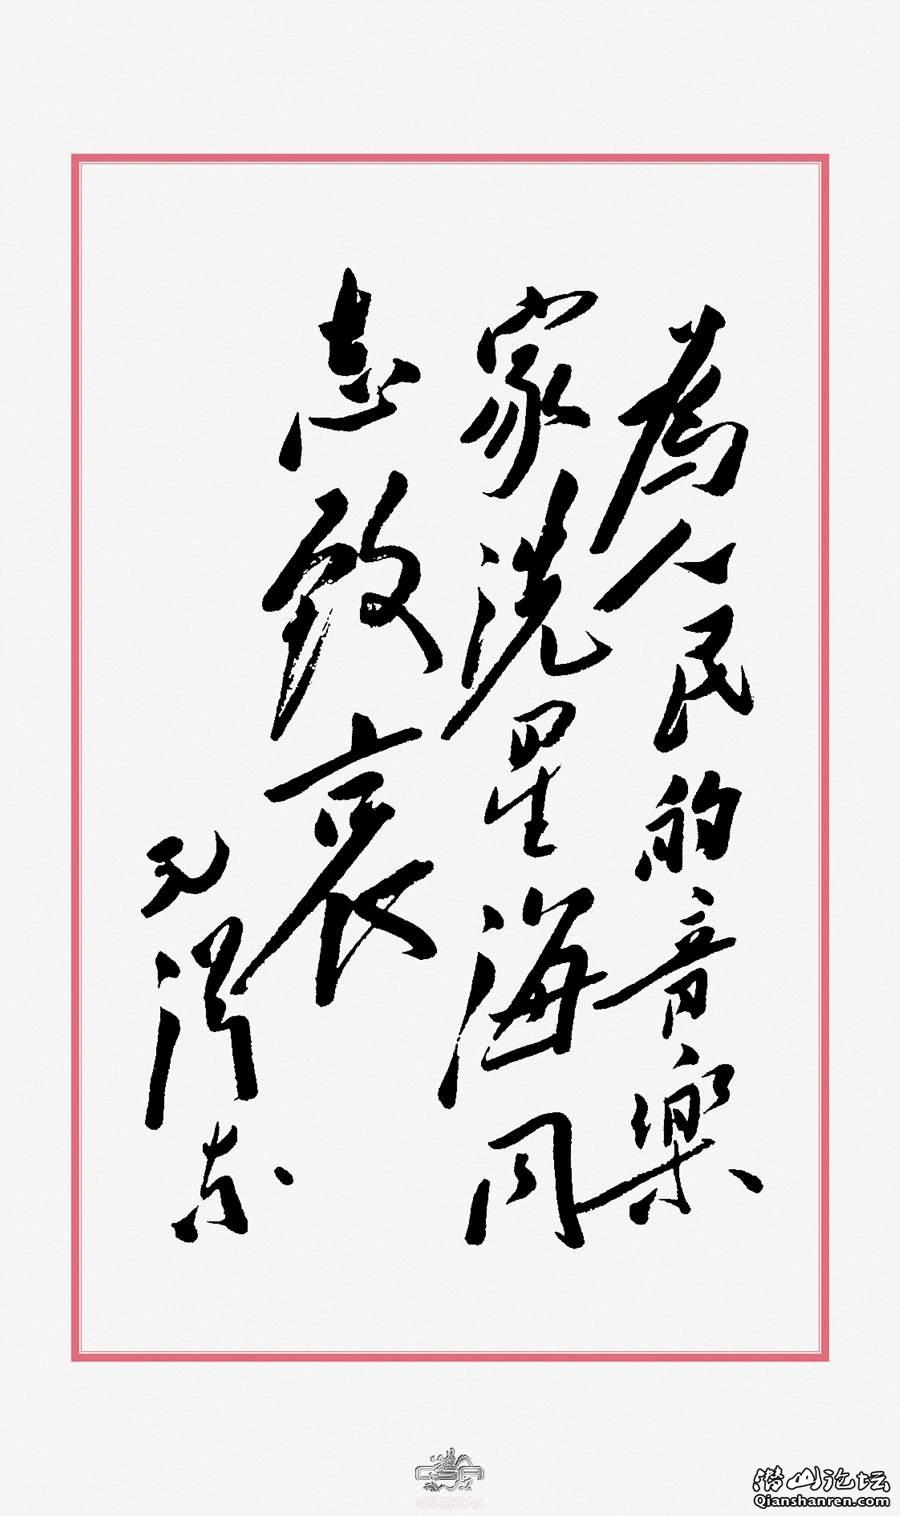 為人民的音樂
家洗星海同
志致哀
毛澤东
潜山论坛
Qianshanren.com